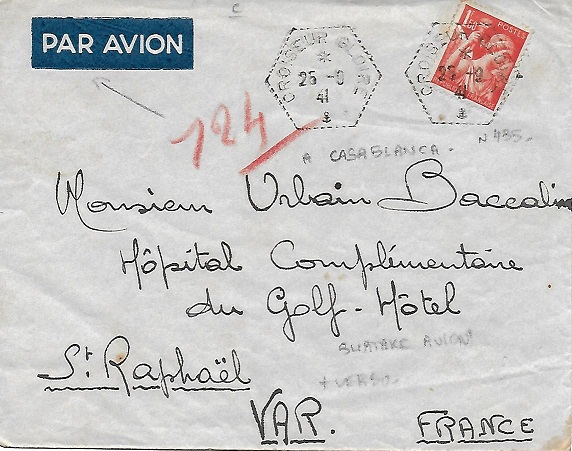 C
PAR AVION
CROISEUR GLOIRE
25-9
41
CROISEUR GLOIRE
25-9
41
POSTES
124
A CASABLANCA.
N°485.
Monsieur Urbain Baccalin
Hôpital Complémentaire
du Golf-Hôtel
SURTAXE AVION
St. Raphaël
+ VERSO.
VAR. FRANCE